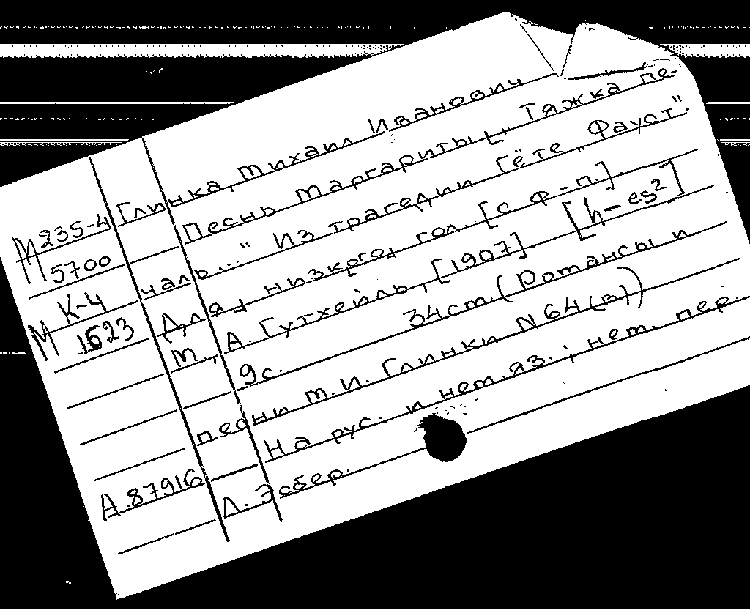 Глинка, Михаил Иванович
М 235-4 Песнь Маргариты „Тяжка пе-
П 5700 чаль..." Из трагедии Гёте „Фауст".
К-4 Для низкого гол [с ф-п.]. [h-es²]
М 1623 М., А Гутхейль, [1907].
9с. 34cm (Романсы и
песни М.И. Глинки N 64(в))
На рус. и нем. яз.; нем. пер.
А.87916 Л. Эсбер.